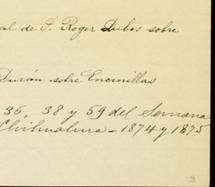 al de S. Roger Dubos sobre
Durán sobre Encinillas
36, 38 y 59 del Semana
Chihuahua - 1874 y 1875